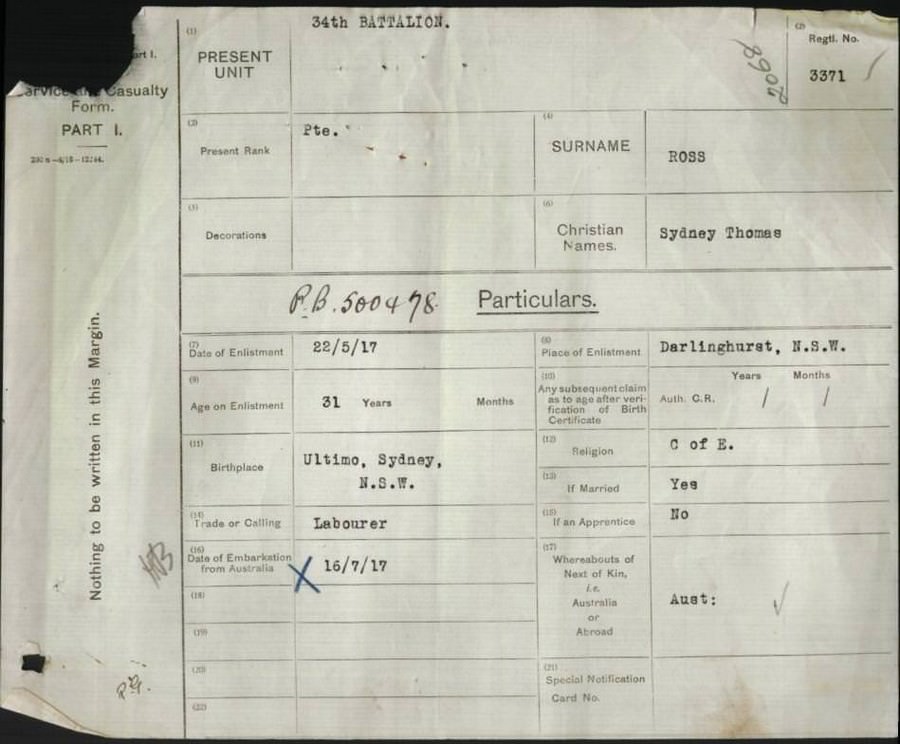 34th BATTALION.
(1)
PRESENT
UNIT
(2)
Regtl. No.
3371
8904
art I.
Service and Casualty
Form.
PART I.
(3)
Present Rank
Pte.
(4)
SURNAME
ROSS
(5)
Decorations
(6)
Christian
Names.
Sydney Thomas
P.B. 500478
Particulars.
(7)
Date of Enlistment
22/5/17
(8)
Place of Enlistment
Darlinghurst, N.S.W.
(9)
Age on Enlistment
31 Years Months
(10)
Any subsequent claim
as to age after veri-
fication of Birth
Certificate
Years Months
Auth. C.R. / /
(11)
Birthplace
Ultimo, Sydney,
N.S.W.
(12)
Religion
C of E.
(13)
If Married
Yes
(14)
Trade or Calling
Labourer
(15)
If an Apprentice
No
(16)
Date of Embarkation
from Australia
X 16/7/17
(17)
Whereabouts of
Next of Kin,
i.e.
Australia
or
Abroad
Aust:
(18)
(19)
(20)
(21)
Special Notification
Card No.
(22)
Nothing to be written in this Margin.